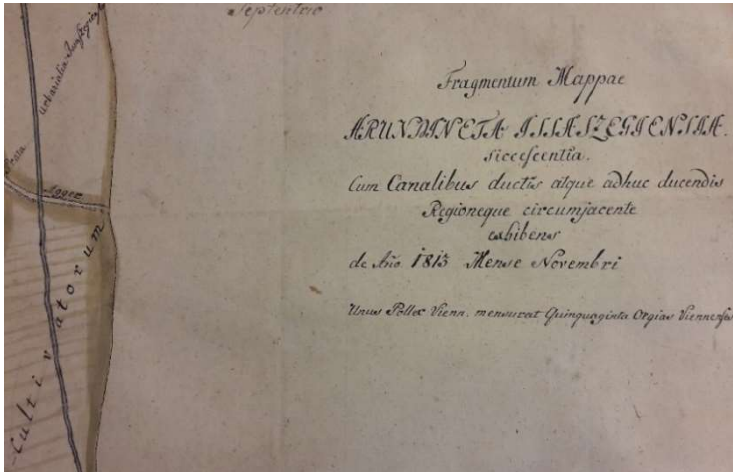 Septentrio
Fragmentum Mappae
ARUNDINETA ILLIASZEGIENSIA.
siccescentia.
Cum Canalibus ductis atque adhuc ducendis
Regioneque circumjacente
exhibens
de Año 1813 Mense Novembri
Unus Pollex Vienn. mensurat Quinquaginta Orgias Viennenses
Prata
Urbarialia
Agger
Cultivatorum